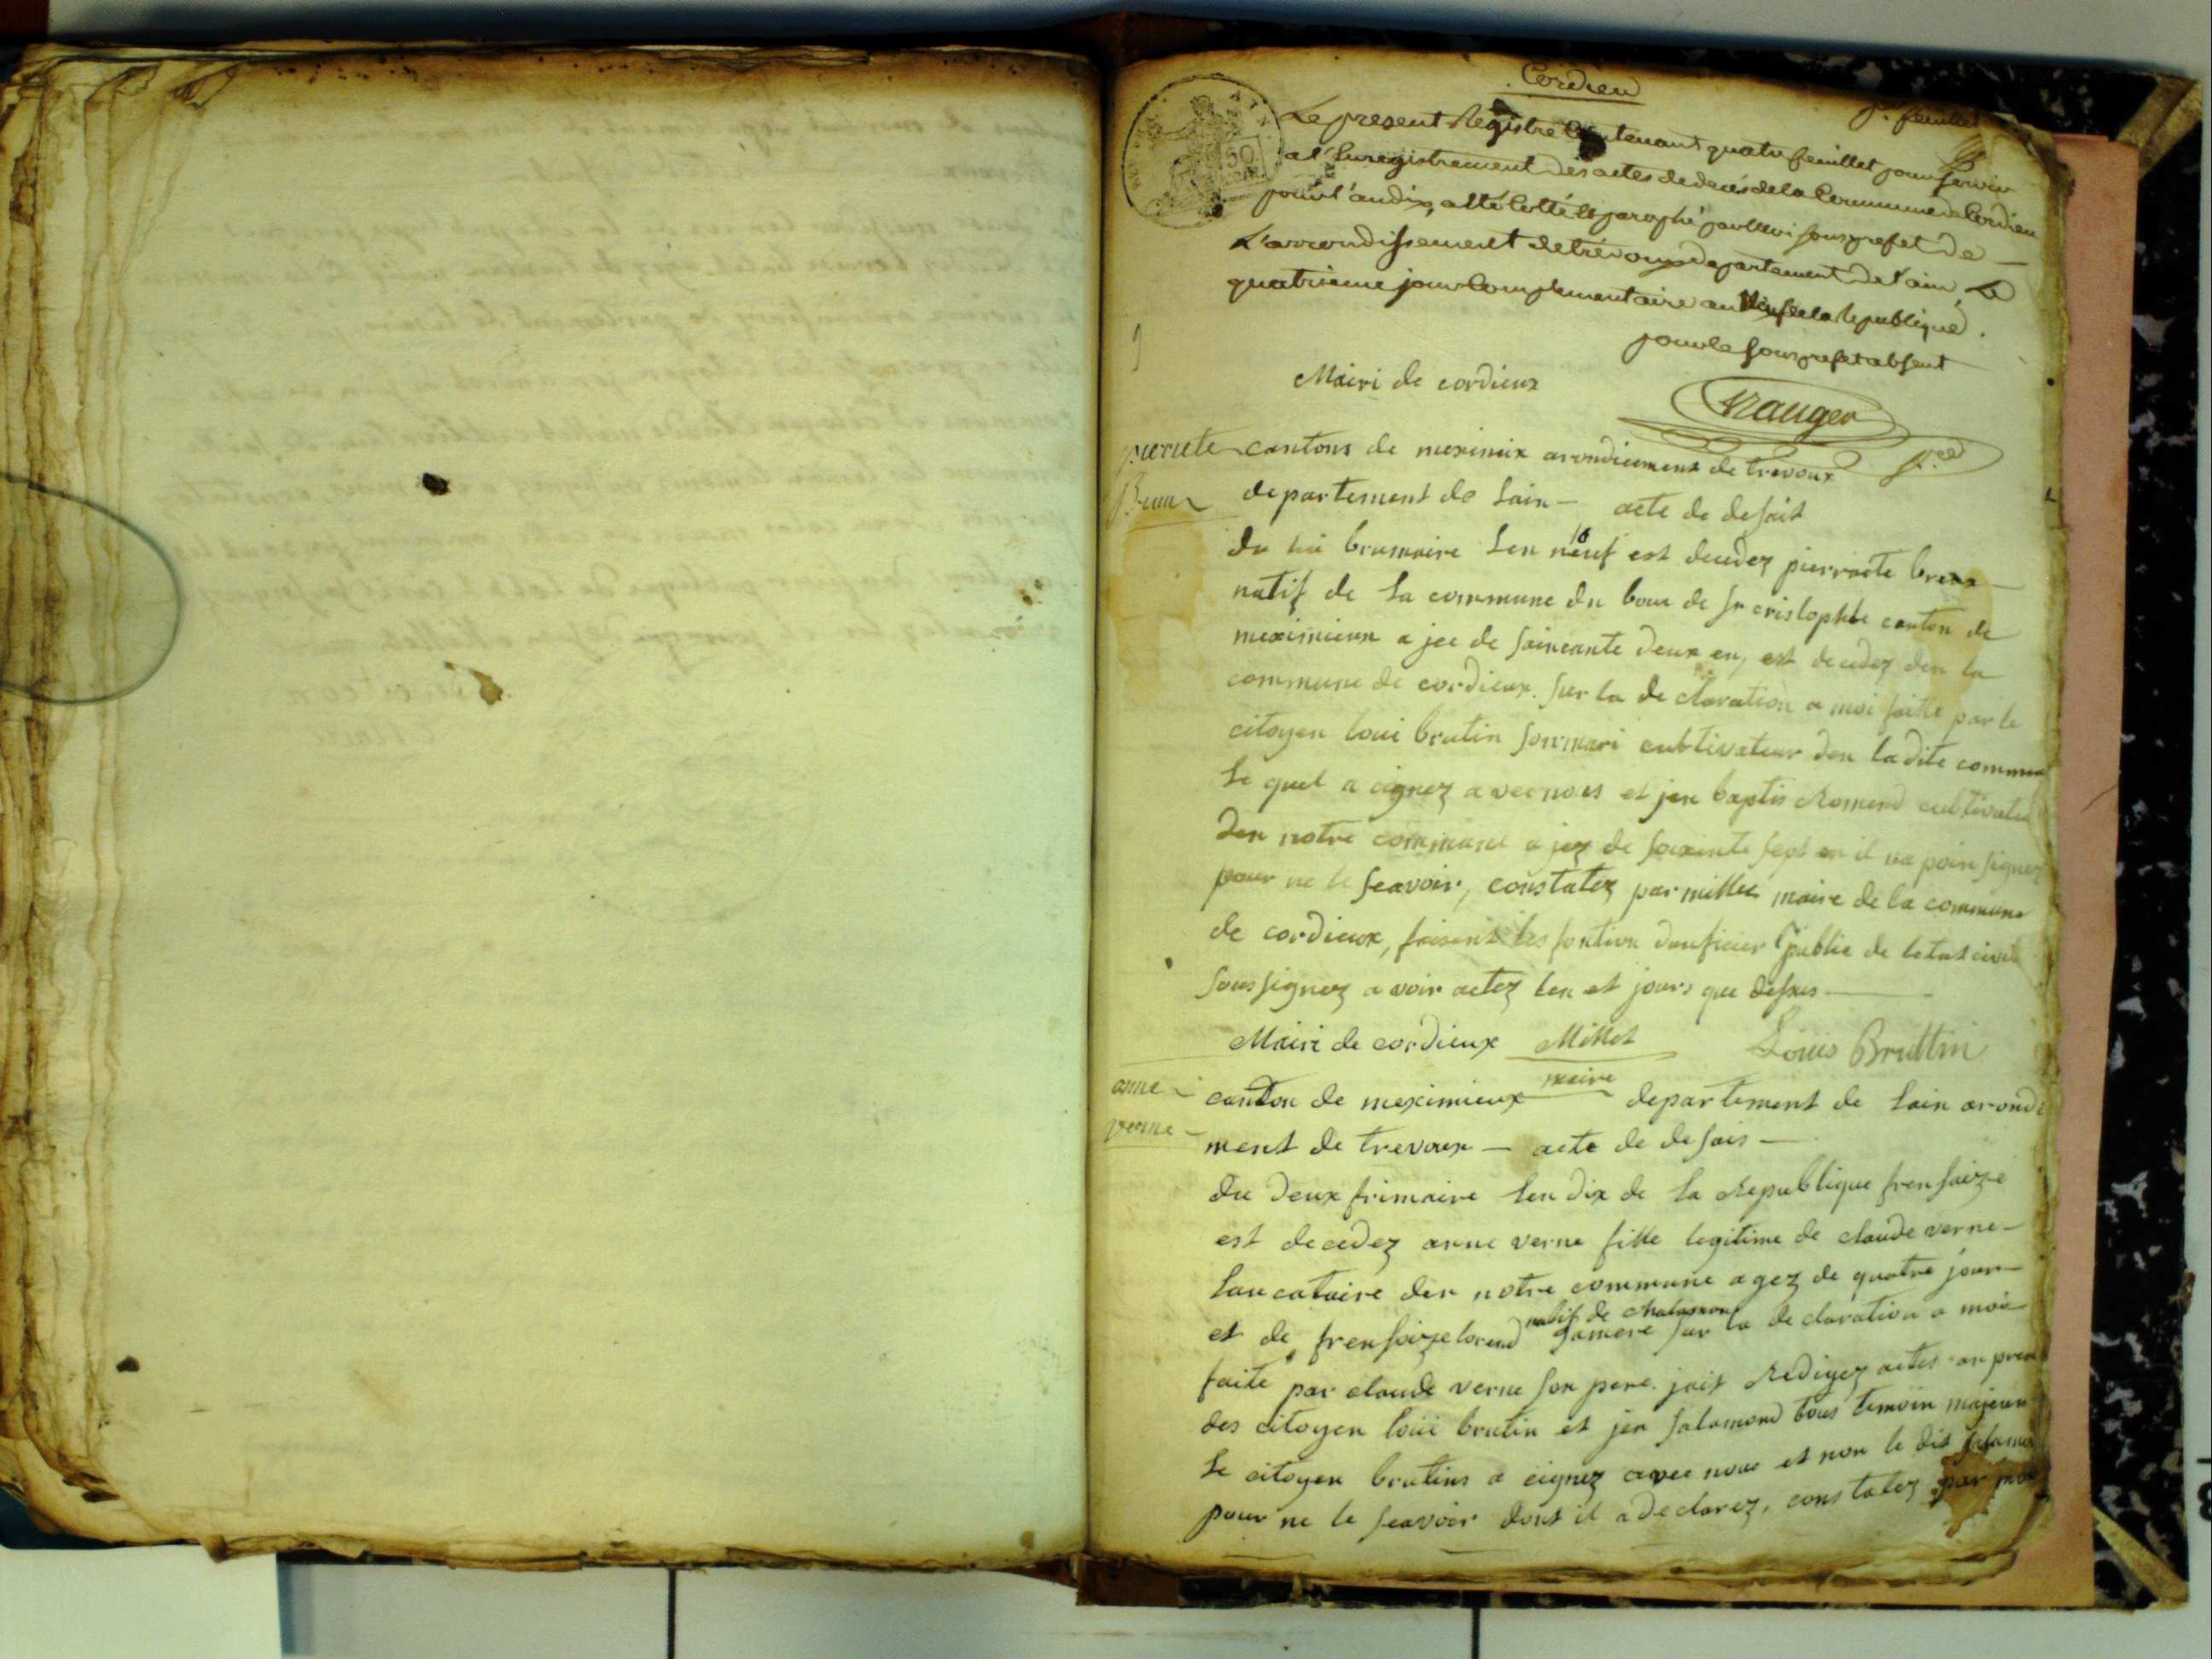 Cordieu
1er feuillet
Le present Registre Contenant quatre feuillet pour servir
a l'Enregistrement des actes de decés de la Commune de Cordieu
pour l'an dix, a été Cotté et paraphé par nous sous prefet de
L'arrondissement de trévoux departement de l'ain, Le
quatrieme jour Complementaire an neuf de la Republique.
pour le sous prefet absent
Mairi de cordieux
pierrete cantons de meximiux arondiement de trevoux
Brun departement de Lain — acte de desait
du brumaire Len neuf 10 est decedez pierraete
natif de La commune du bour de st cristophle canton de
meximieux a jee de soincante deux en, est decedez den la
commune de cordieux. sur la de claration a moi faitte par le
citoyen loui brutin son mari cultivateur den la dite commun
Le quel a cignez a vec nous et jen baptis Romend cultivateu
den notre commune a jez de soixente sept en il na poin signez
pour ne le scavoir, constatez par millet maire de la commune
de cordieux, faisent les fontion donficier public de letat civil
sous signez a voir actez len et jours que dessus —
Mairi de cordieux Millet Louis Bruttin
maire
anne canton de meximieux departement de Lain arondi
verne ment de trevoux — acte de desais —
du deux frimaire Len dix de La Republique frensaize
est decedez anne verne fille legitime de claude verne —
Laucataire den notre commune agez de quatre jour
natif de chalamon
et de frensoize lorend samere sur la de claration a moi
faite par claude verne son pere. jait Redigez actes an pren
des citoyen loui brutin et jen salamond tous temoin majeur
Le citoyen brutins a cignez avec nous et non le dit salamon
pour ne le scavoir dont il a declarez. constatez par moi